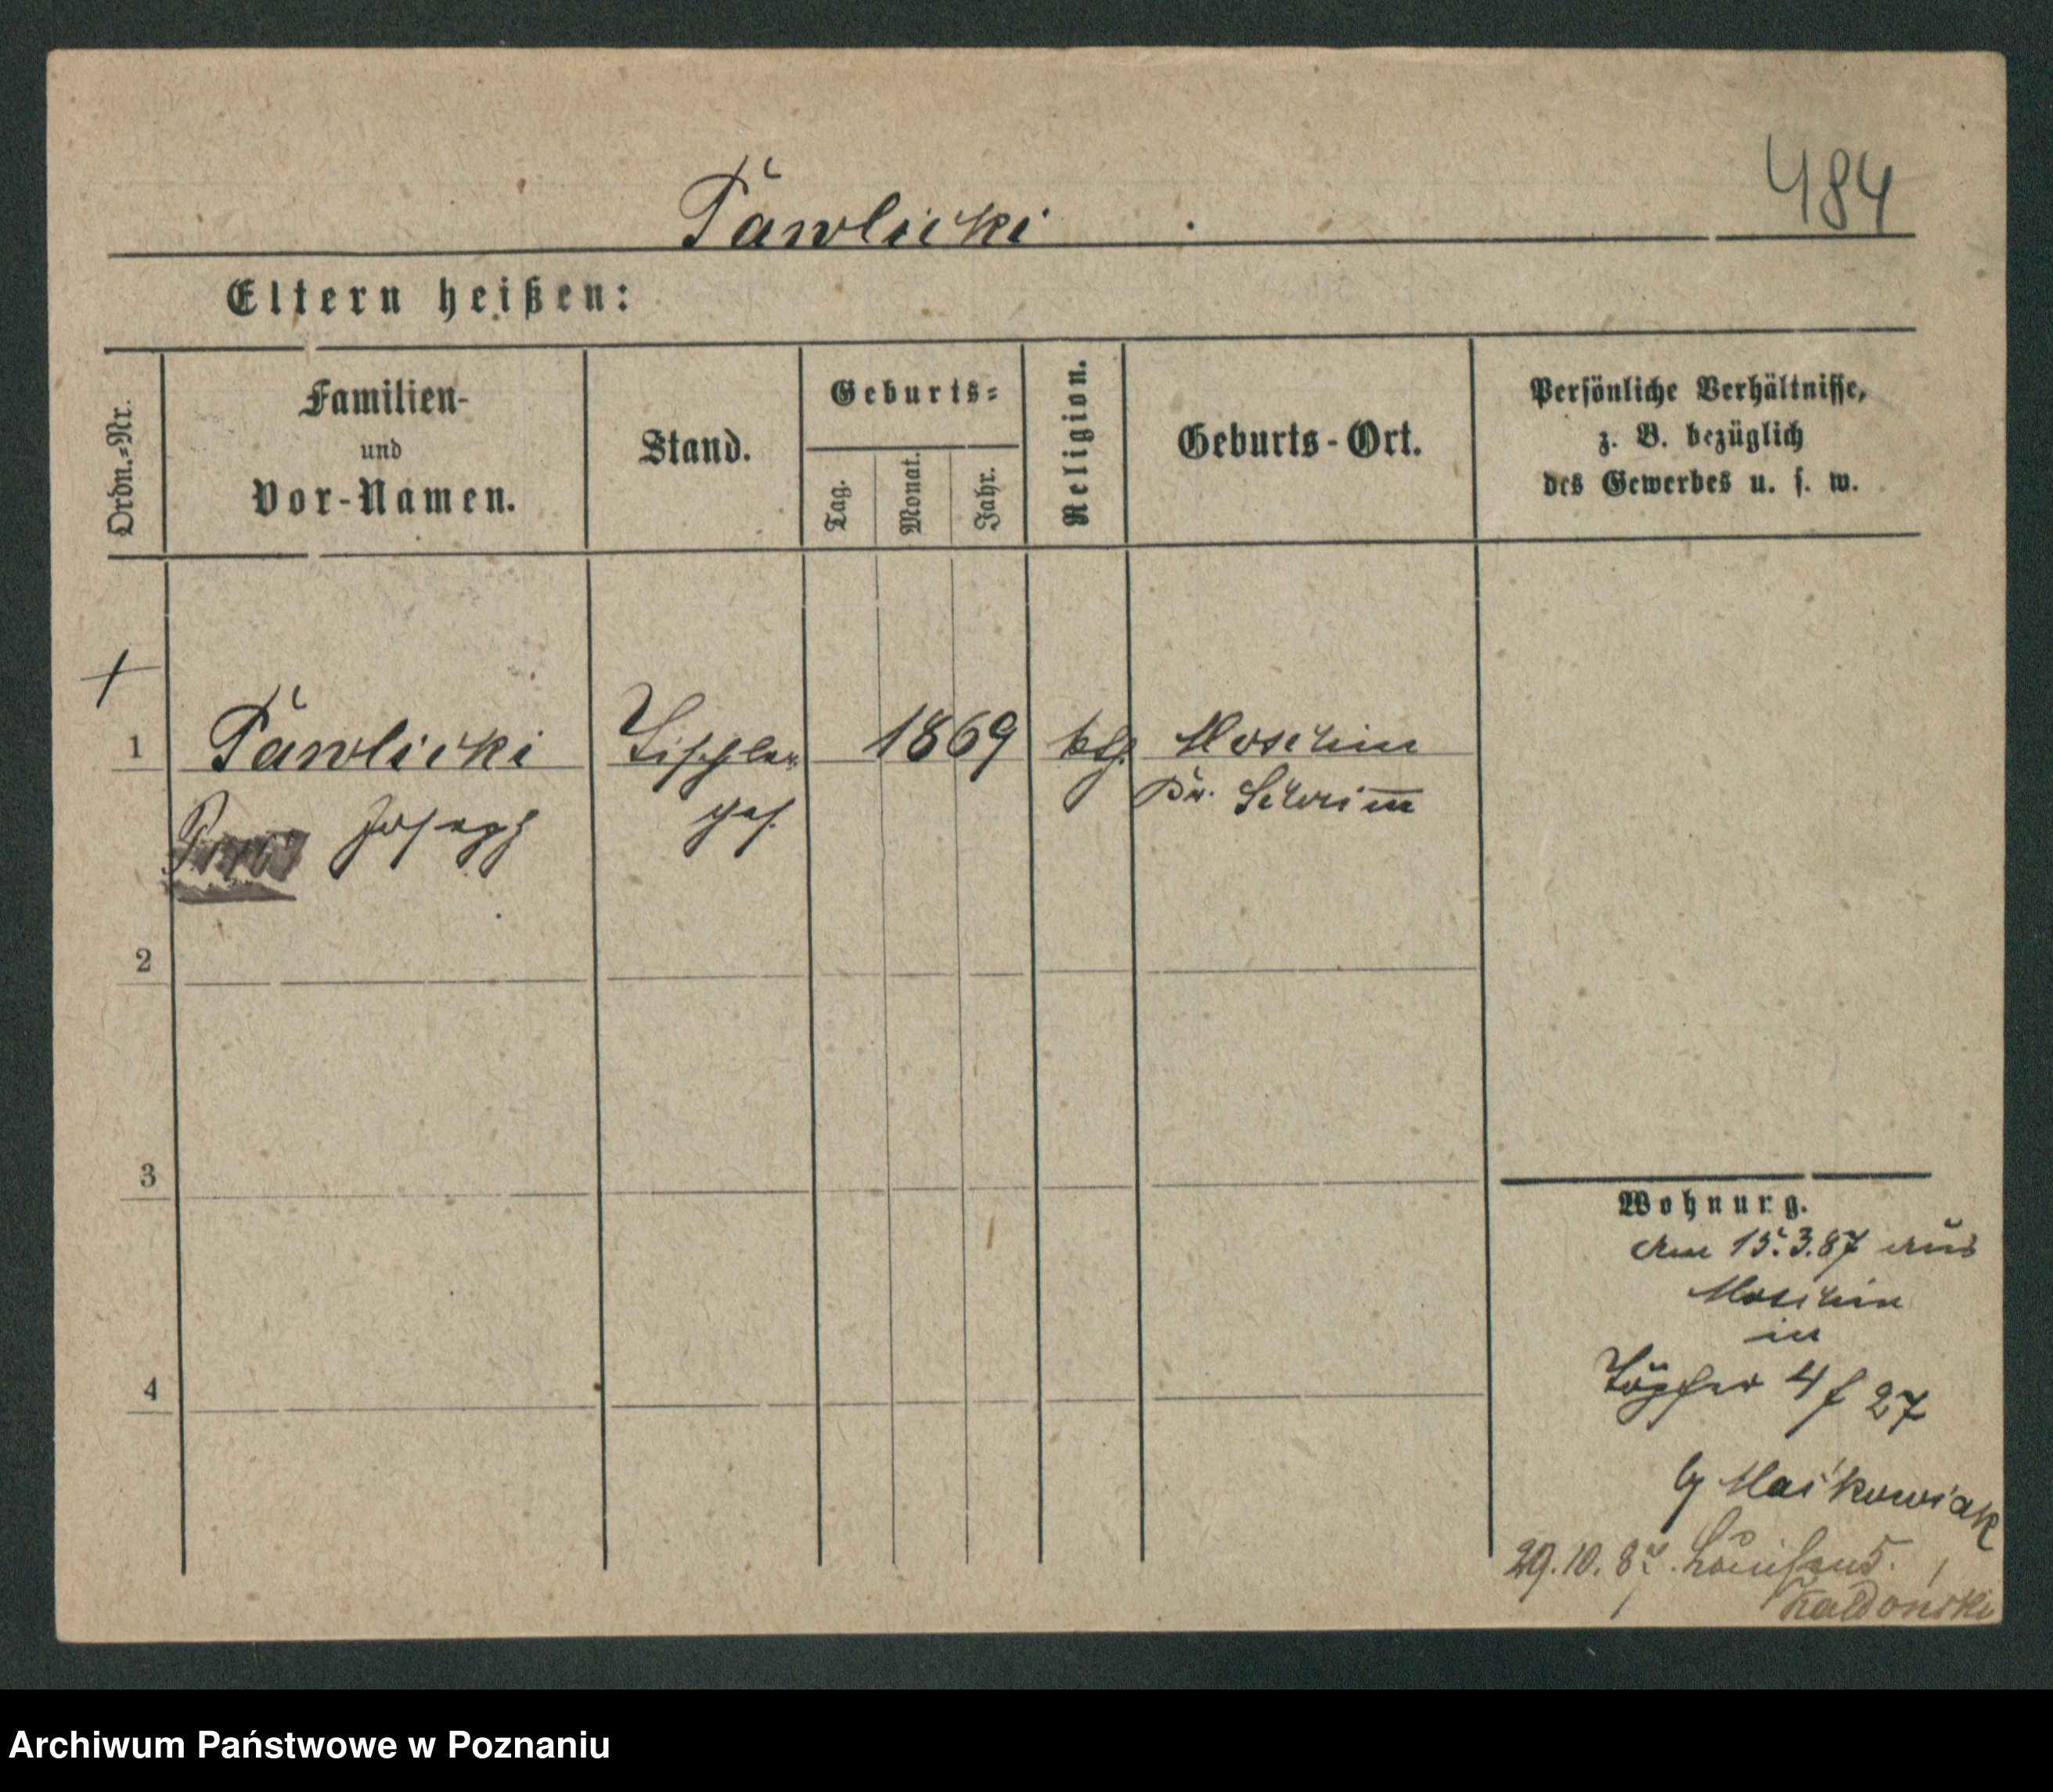 484
Pawlicki
Eltern heißen:
Ordn.-Nr.
Familien-
und
Vor-Namen.
Stand.
Geburts-
Tag.
Monat.
Jahr.
Religion.
Geburts-Ort.
Persönliche Verhältnisse,
z. B. bezüglich
des Gewerbes u. s. w.
1 Pawlicki Tischler 1869 kth. Moschin
Joseph ges. Kr. Schrim̅
2
3
4
Wohnurg.
Am 15.3.87 aus
Moschin
in
Töpfer 4 f 27
Maśkowiak
29.10.87. Louisens.
Archiwum Państwowe w Poznaniu